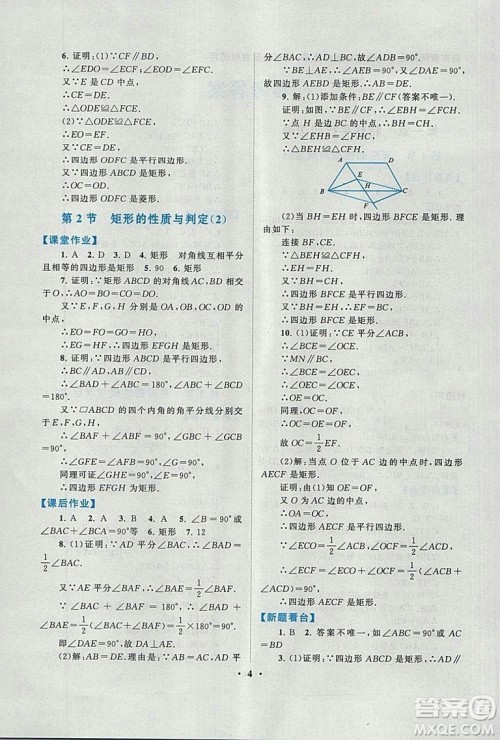 6. 证明:(1)∵CF∥BD,
∴∠EDO=∠ECF,∠EOD=∠EFC.
∴CE=DE.
∴△ODE≌△CFE.
(2)∵△ODE≌△CFE,
∴EO=EF.
又∵CE=DE,
∴四边形 ODFC 是平行四边形.
∵四边形 ABCD 是矩形,
∴OC=OD.
∴四边形 ODFC 是菱形.
第 2 节 矩形的性质与判定(2)
【课堂作业】
1. A 2. D 3. D 4. 矩形 对角线互相平分
且相等的四边形是矩形 5. 90 6. 矩形
7. 证明:∵矩形 ABCD 的对角线相交于点 O,
∴AO=BO=CO=DO.
又∵E,F,G,H 分别是 AO,BO,CO,DO 的
中点,
∴EO=FO=GO=HO.
∴EG=HF.
∴四边形 EFGH 是矩形.
8. 证明:∵四边形 ABCD 是平行四边形,
∴BC∥AD.
∴∠BAD+∠ABC=180°,∠BAD+∠ADC=
180°.
又∵▱ABCD 的四个内角的角平分线分别交于
点 E,F,G,H,
∴∠BAF+∠ABF=90°,∠BAF+∠ADE=
90°.
∴∠GFE=∠AFB=90°,∠AED=90°.
同理可证∠EHG=90°.
∴四边形 EFGH 是矩形.
【课后作业】
1. A 2. C 3. B 4. A 5. ∠B=90°或
∠BAC+∠BCA=90° 6. 矩形 7. 12
8. (1)证明:∵AD 平分∠BAC,∴∠BAD=
1/2∠BAC.
又∵AE 平分∠BAF,∴∠BAE=1/2∠BAF.
∵∠BAC+∠BAF=180°,∴∠BAD+∠BAE=
1/2(∠BAC+∠BAF)=1/2×180°=90°,
即∠DAE=90°.故 DA⊥AE.
(2)解:AB=DE.证明:∵AB=AC,AD 平
分∠BAC,∴AD⊥BC.故∠ADB=90°.
∵BE⊥AE,∴∠AEB=90°.又∠DAE=90°,
∴四边形 AEBD 是矩形.∴AB=DE.
9. 解:(1)添加条件:BE∥CF(答案不唯一).
证明:如图,∵BE∥CF,∴∠1=∠2.
∵点 H 是边 BC 的中点,∴BH=CH.
A
D
E
H
B
C
F
(2)当 BH=EH 时,四边形 BFCE 是矩形.
理由如下:
连接 BF,CE.
∵△BEH≌△CFH,
∴BH=CH,EH=FH.
∴四边形 BFCE 是平行四边形.
∵BH=EH,
∴BC=EF.
∴四边形 BFCE 是矩形.
10. (1)证明:∵CE 平分∠ACB,
∴∠ACE=∠BCE.
∵MN∥BC,
∴∠OEC=∠BCE.
∴∠ACE=∠OEC.
∴OE=OC.
同理,OF=OC.
∴OE=OF.
故 OC=1/2EF.
(2)解:当点 O 位于 AC 边的中点时,四边形
AECF 是矩形.
证明:由(1)知 OE=OF,
又∵O 是 AC 边的中点,∴OA=OC.
∴四边形 AECF 是平行四边形.
∵∠ECF=∠ACE+∠ACF=1/2(∠ACB+
∠ACD)=90°,
∴四边形 AECF 是矩形.
【新题看台】
1. B 2. 答案不唯一,如∠ABC=90°或
AC=BD
4